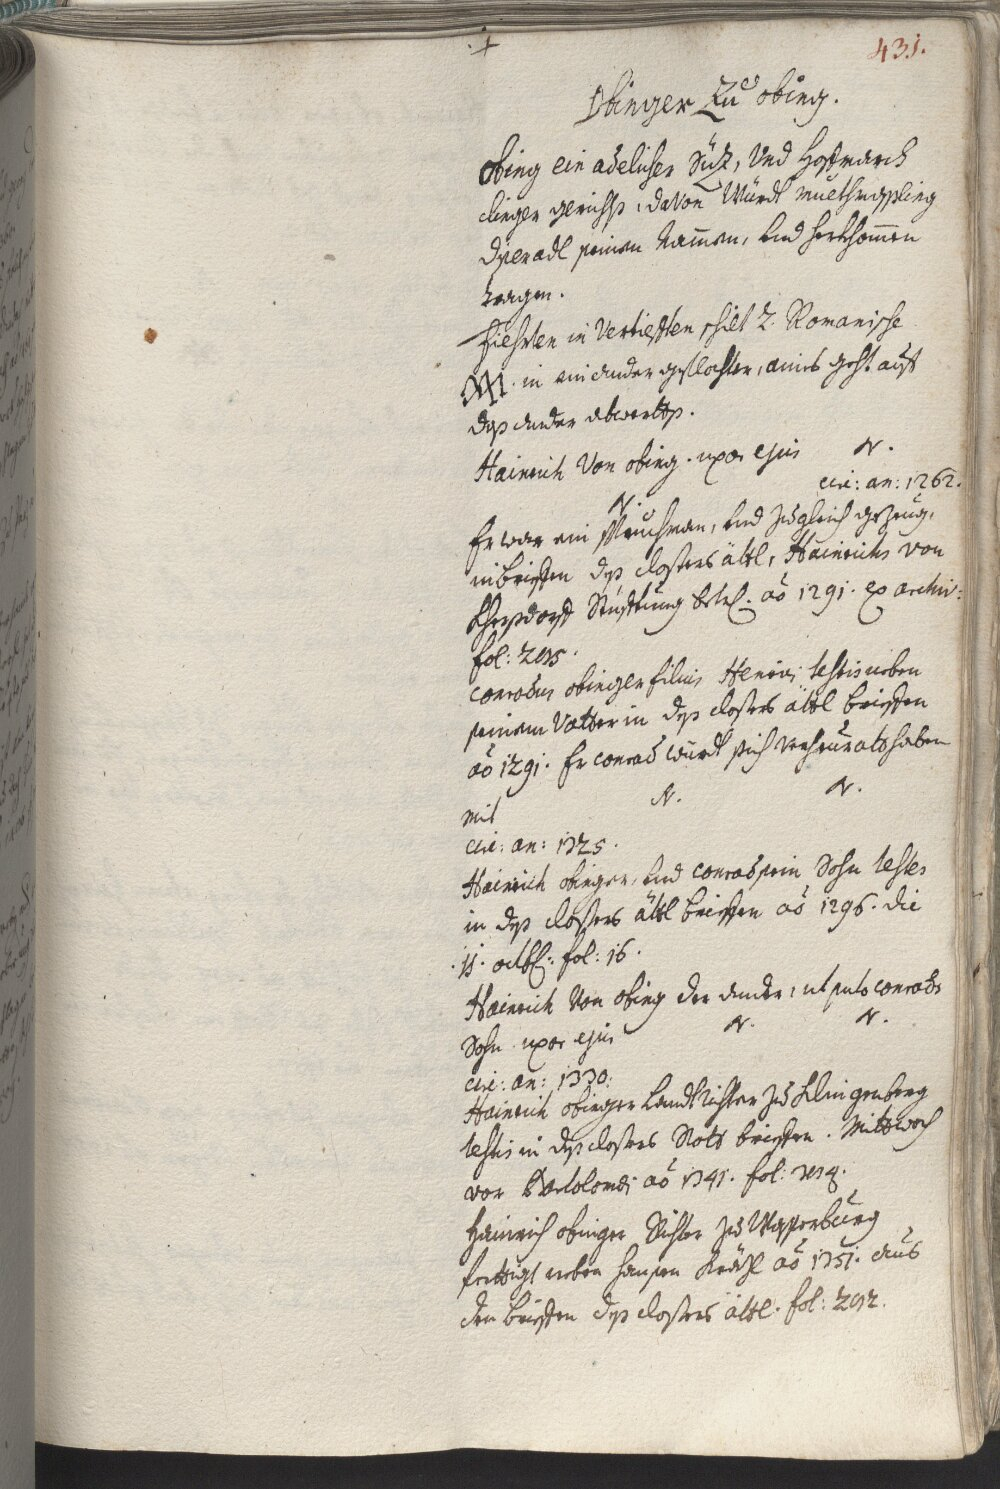 +
431.
Obinger Zu obing.
Obing ein adelicher Sitz, Und Hofmarch
clinger gerichts, davon Würdt muethmassling
diser adl seinen Nammen, und herkhommen
tragen.
Fiehrten in Vertiefften schilt 2. Romanische
XX. in einander geflochten, aines geht auf
dass ander abwertss.
Hainrich Von obing. uxor ejus N. N.
circ: an: 1262.
Er war ein und zugleich gezeug,
in brieffen dess closters ättl, Hainrichs von
Stüfftung ao 1291. ex archiv:
fol: 205.
conradus obinger filius Henrici testis neben
seinem Vatter in dess closters ättl brieffen
ao 1291. Er conrad würdt sich verheürath haben
mit N. N.
circ: an: 1325.
Hainrich obinger, und conrad sein Sohn testes
in dess closters ättl brieffen ao 1296. die
11. octb: fol: 16.
Hainrich Von obing der ander, ut puto conrads
Sohn uxor ejus N. N.
circ: an: 1330.
Hainrich obinger Landtrichter zu Klingenberg
testis in dess closters Rott brieffen. Mittwoch
vor Bartolomei ao 1341. fol:
Hainrich obinger Richter zu Wasserburg
ferttigt neben hansen ao 1351. aus
den brieffen dess closters ättl. fol: 202.